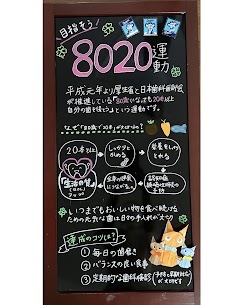 目指そう！
8020運動
平成元年より厚生省と日本歯科医師会
が推進している「80歳になっても20本以上
自分の歯を保とう」という運動です。
なぜ「80歳で20本」が大切なの？
20本以上
しっかりと
かめる
栄養をしっかり
とれる
「生活の質」
全身の健康
につながる
いつまでもおいしい物を食べ続ける
ためにも元気な歯は日々の手入れが大切
達成のコツは？
① 毎日の歯磨き
② バランスの良い食事
③ 定期的な歯科検診